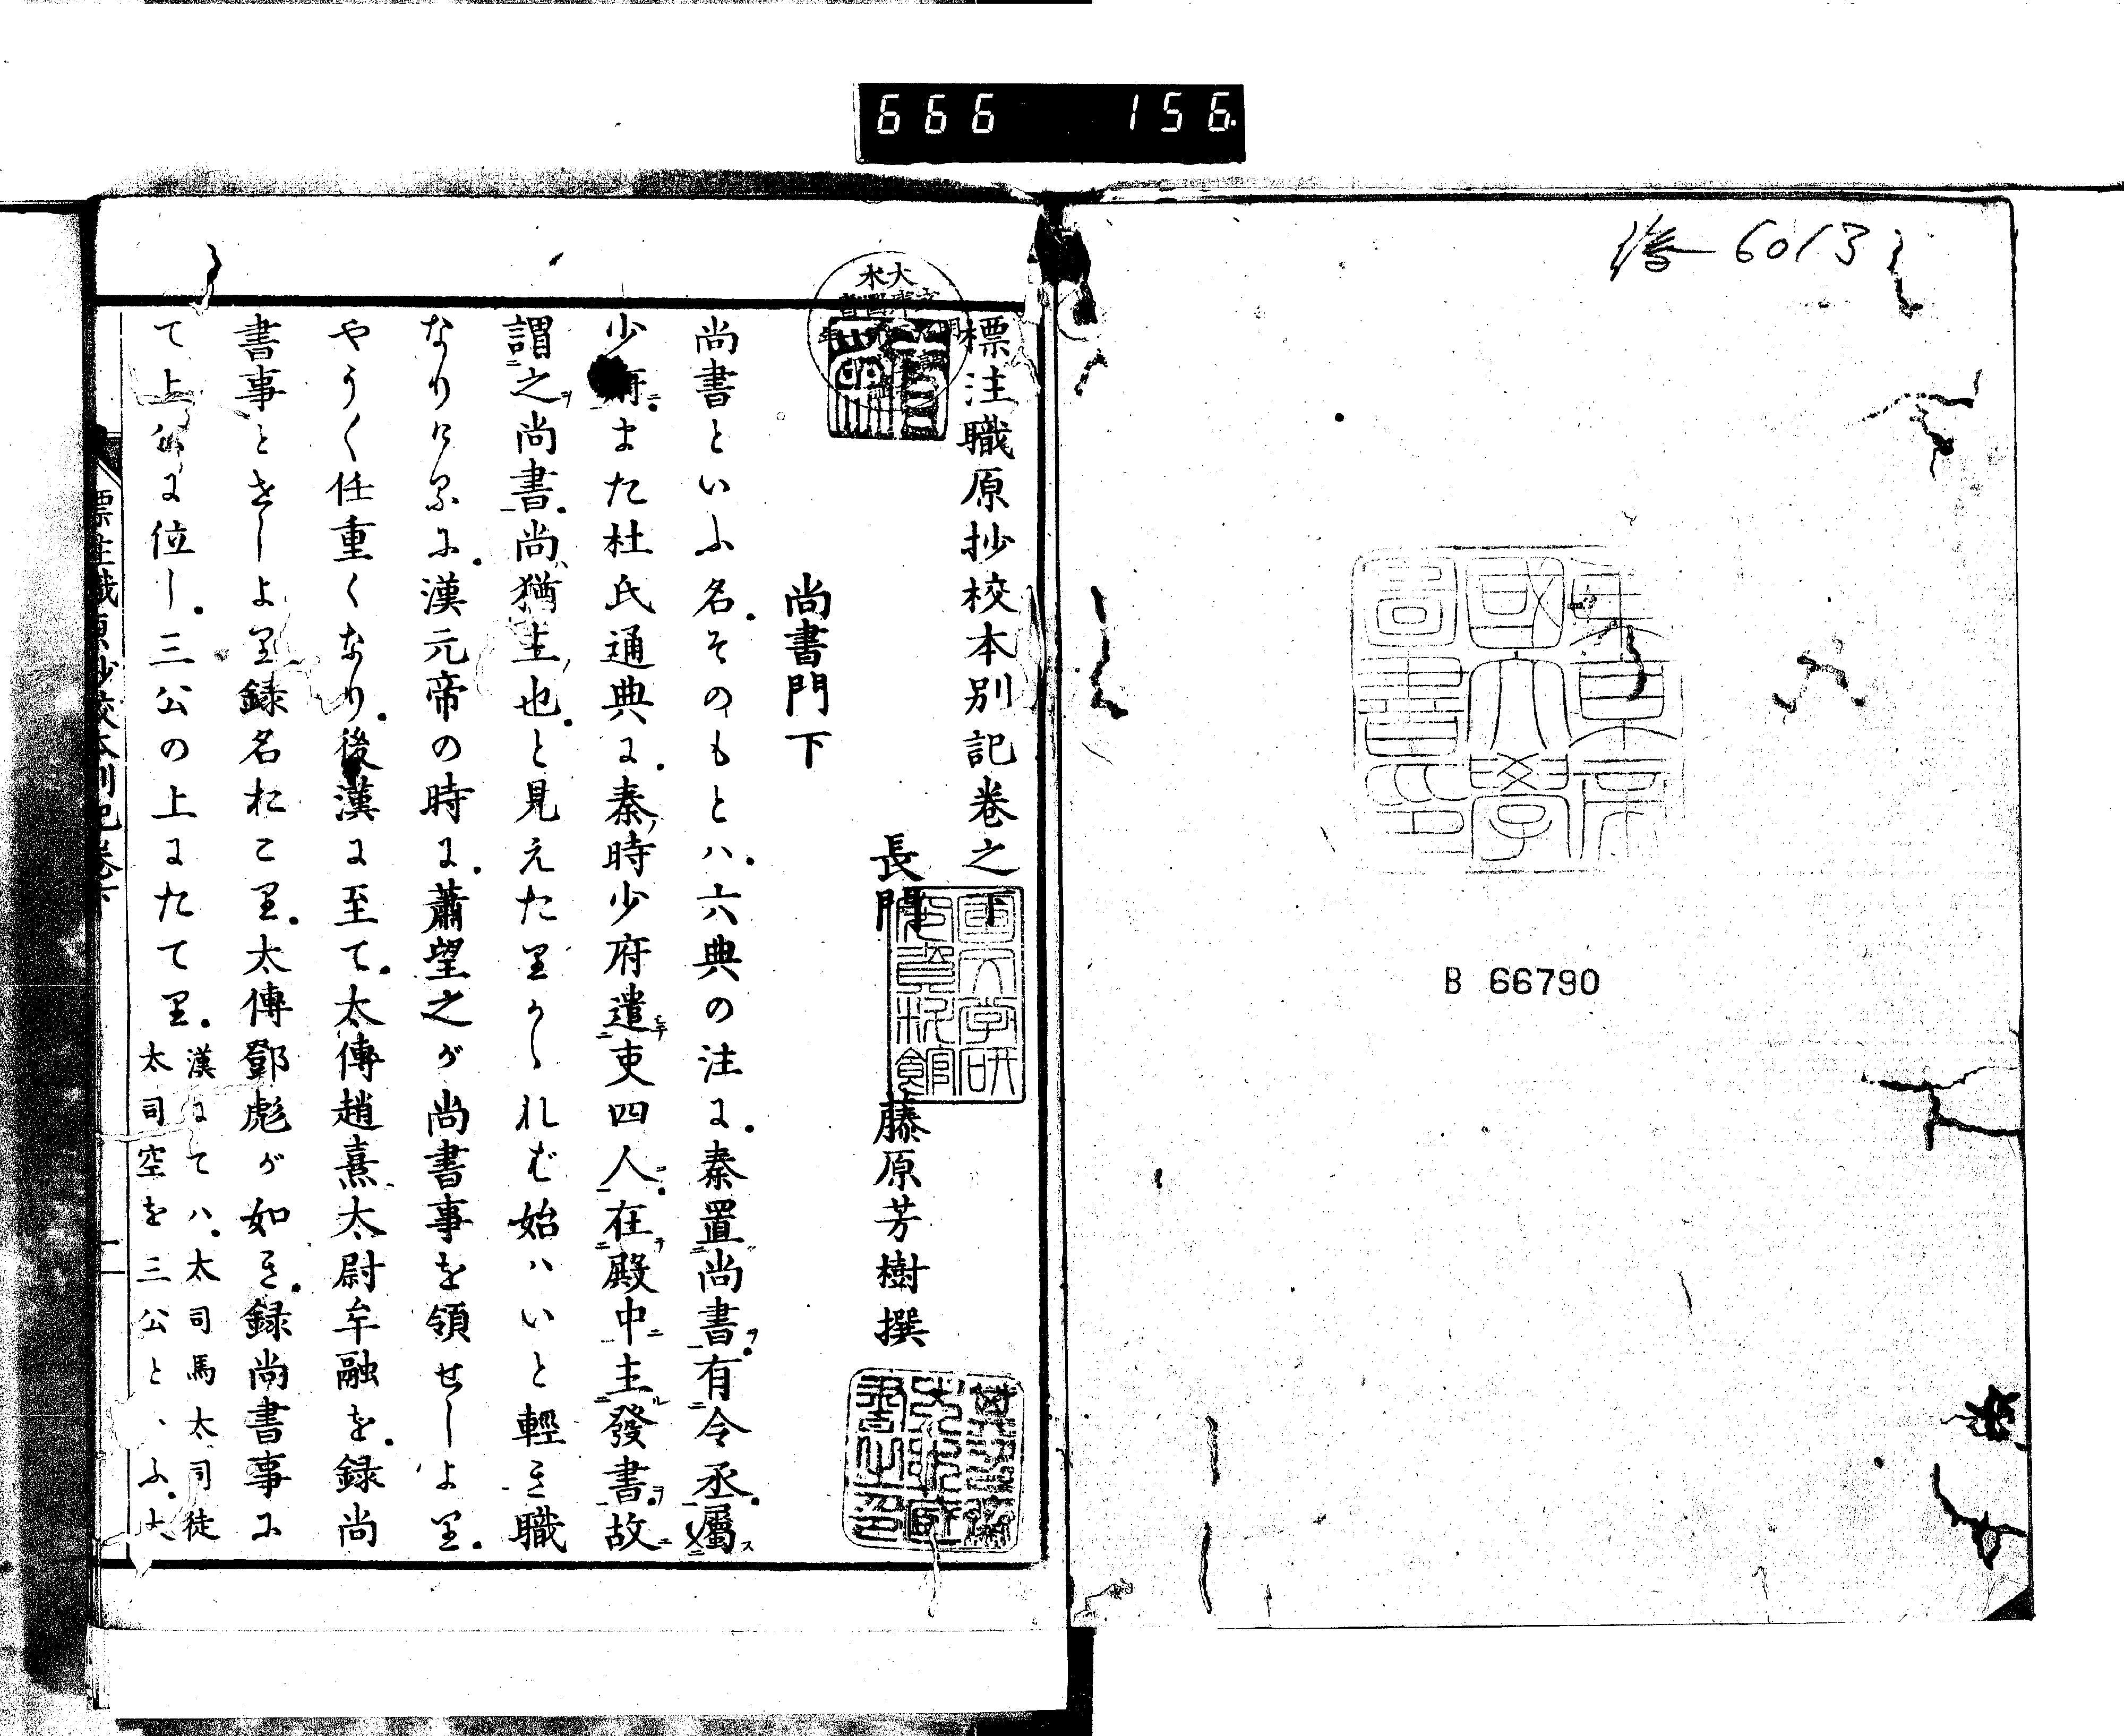 666 156
修一6013
B 66790
標注職原抄校本別記巻之下
長門 藤原芳樹撰
尚書門下
尚書といふ名そのもとハ六典の注に秦置尚書有令丞属
少府また杜氏通典に秦時少府遣吏四人在殿中主發書故
謂之尚書尚猶主也と見えたりかゝれば始ハいと輕き職
なりけるに漢元帝の時に蕭望之が尚書事を領せしより
やう〳〵任重くなり後漢に至て太傅趙熹太尉牟融を録尚
書事とせしより録名おこり太傅鄧彪が如き録尚書事に
て上公に位し三公の上にたてり
漢にてハ太司馬太司徒
太司空を三公といふ大
標注職原抄校本別記巻下
一
東京帝
國大學
圖書印
国文学研
究資料館